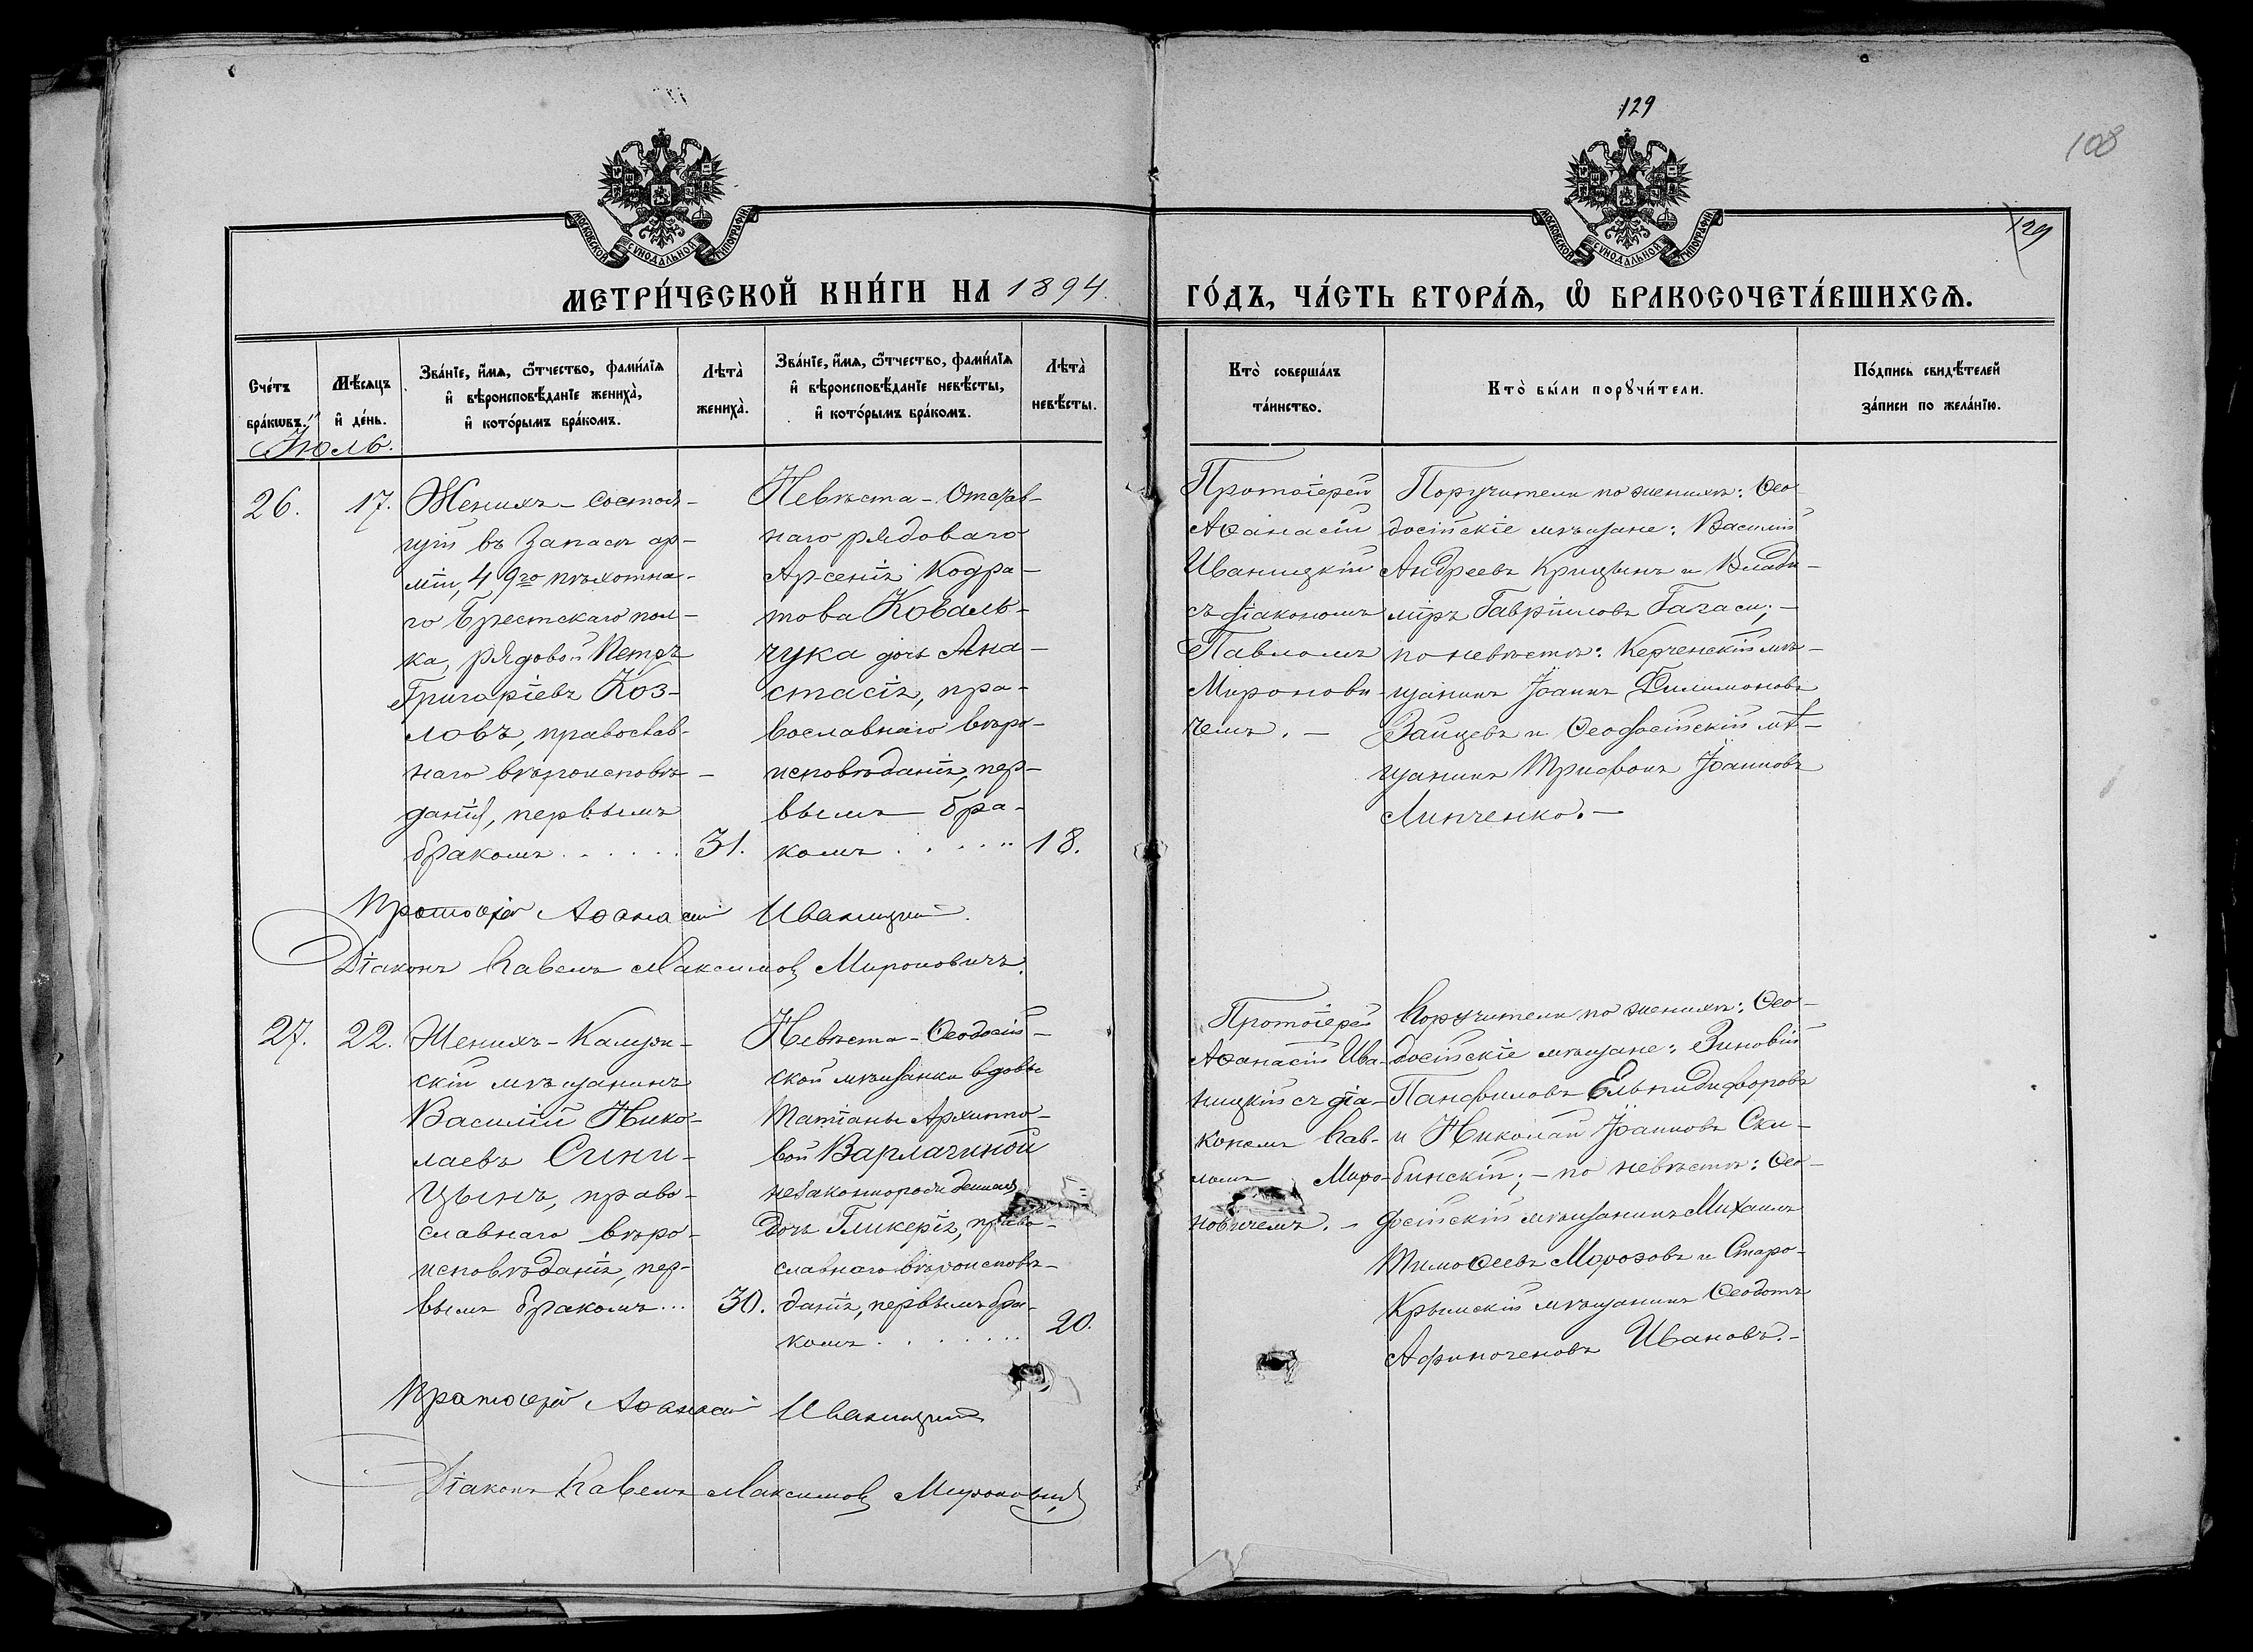 129
108
129
МОСКОВСКОЙ СѴНОДАЛЬНОЙ ТИПОГРАФІИ
МОСКОВСКОЙ СѴНОДАЛЬНОЙ ТИПОГРАФІИ
МЕТРИ́ЧЕСКОЙ КНИ́ГИ НА 1894.
ГО́ДЪ, ЧА́СТЬ ВТОРА́Ѧ, Ѽ БРАКОСОЧЕТА́ВШИХСѦ.
Сче́тъ
бра́кѡвъ.
Мѣ́сяцъ
и҆ де́нь.
Зва́нїе, и҆́мѧ, ѻ҆́тчество, фами́лїѧ
и҆ вѣроисповѣ́данїе жениха̀,
и҆ кото́рымъ бра́комъ.
Лѣта̀
жениха̀.
Зва́нїе, и҆́мѧ, ѻ҆́тчество, фами́лїѧ
и҆ вѣроисповѣ́данїе невѣ́сты,
и҆ кото́рымъ бра́комъ.
Лѣта̀
невѣ́сты.
Кто̀ соверша́лъ
та́инство.
Кто̀ бы́ли порꙋчи́тели.
По́дпись свидѣ́телей
за́писи по жела́нїю.
Іюль.
26.
17.
Женихъ - состоя-
щій въ Запасѣ ар-
міи, 49го пѣхотна-
го Брестскаго пол-
ка, рядовой Петръ
Григоріевъ Коз-
ловъ, православ-
наго вѣроисповѣ-
данія, первымъ
бракомъ......
31.
Невѣста - Отстав-
наго рядоваго
Арсенія Кодра-
това Коваль-
чука дочь Ана-
стасія, пра-
вославнаго вѣро-
исповѣданія, пер-
вымъ бра-
комъ.....
18.
Протоіерей
Аѳанасій
Иваницкій
съ діакономъ
Павломъ
Миронови-
чемъ. -
Поручители по женихѣ: Ѳео-
досійскіе мѣщане: Василій
Андреевъ Крицынъ и Влади-
міръ Гавріиловъ Гагаси; -
по невѣстѣ: Керченскій мѣ-
щанинъ Іоаннъ Филимоновъ
Зайцевъ и Ѳеодосійскій мѣ-
щанинъ Трифонъ Іоанновъ
Линченко. -
Протоіерей Аѳанасій Иваницкій.
Діаконъ Павелъ Максимовъ Мироновичъ.
27.
22.
Женихъ - Калуж-
скій мѣщанинъ
Василій Нико-
лаевъ Сини-
цынъ, право-
славнаго вѣро-
исповѣданія, пер-
вымъ бракомъ...
30.
Невѣста - Ѳеодосій-
ской мѣщанки вдовы
Татіаны Архиппо-
вой Варлагиной
незаконнорожденная
дочь Гликерія, право-
славнаго вѣроисповѣ-
данія, первымъ бра-
комъ.......
20.
Протоіерей
Аѳанасій Ива-
ницкій съ діа-
кономъ Пав-
ломъ Миро-
новичемъ. -
Поручители по женихѣ: Ѳео-
досійскіе мѣщане: Зиновій
Панфиловъ Ельпидифоровъ
и Николай Іоанновъ Ски-
бинскій; - по невѣстѣ: Ѳео-
досійскій мѣщанинъ Михаилъ
Тимоѳеевъ Морозовъ и Старо-
Крымскій мѣщанинъ Ѳеодотъ
Афиногеновъ Ивановъ. -
Протоіерей Аѳанасій Иваницкій
Діаконъ Павелъ Максимовъ Мироновичъ